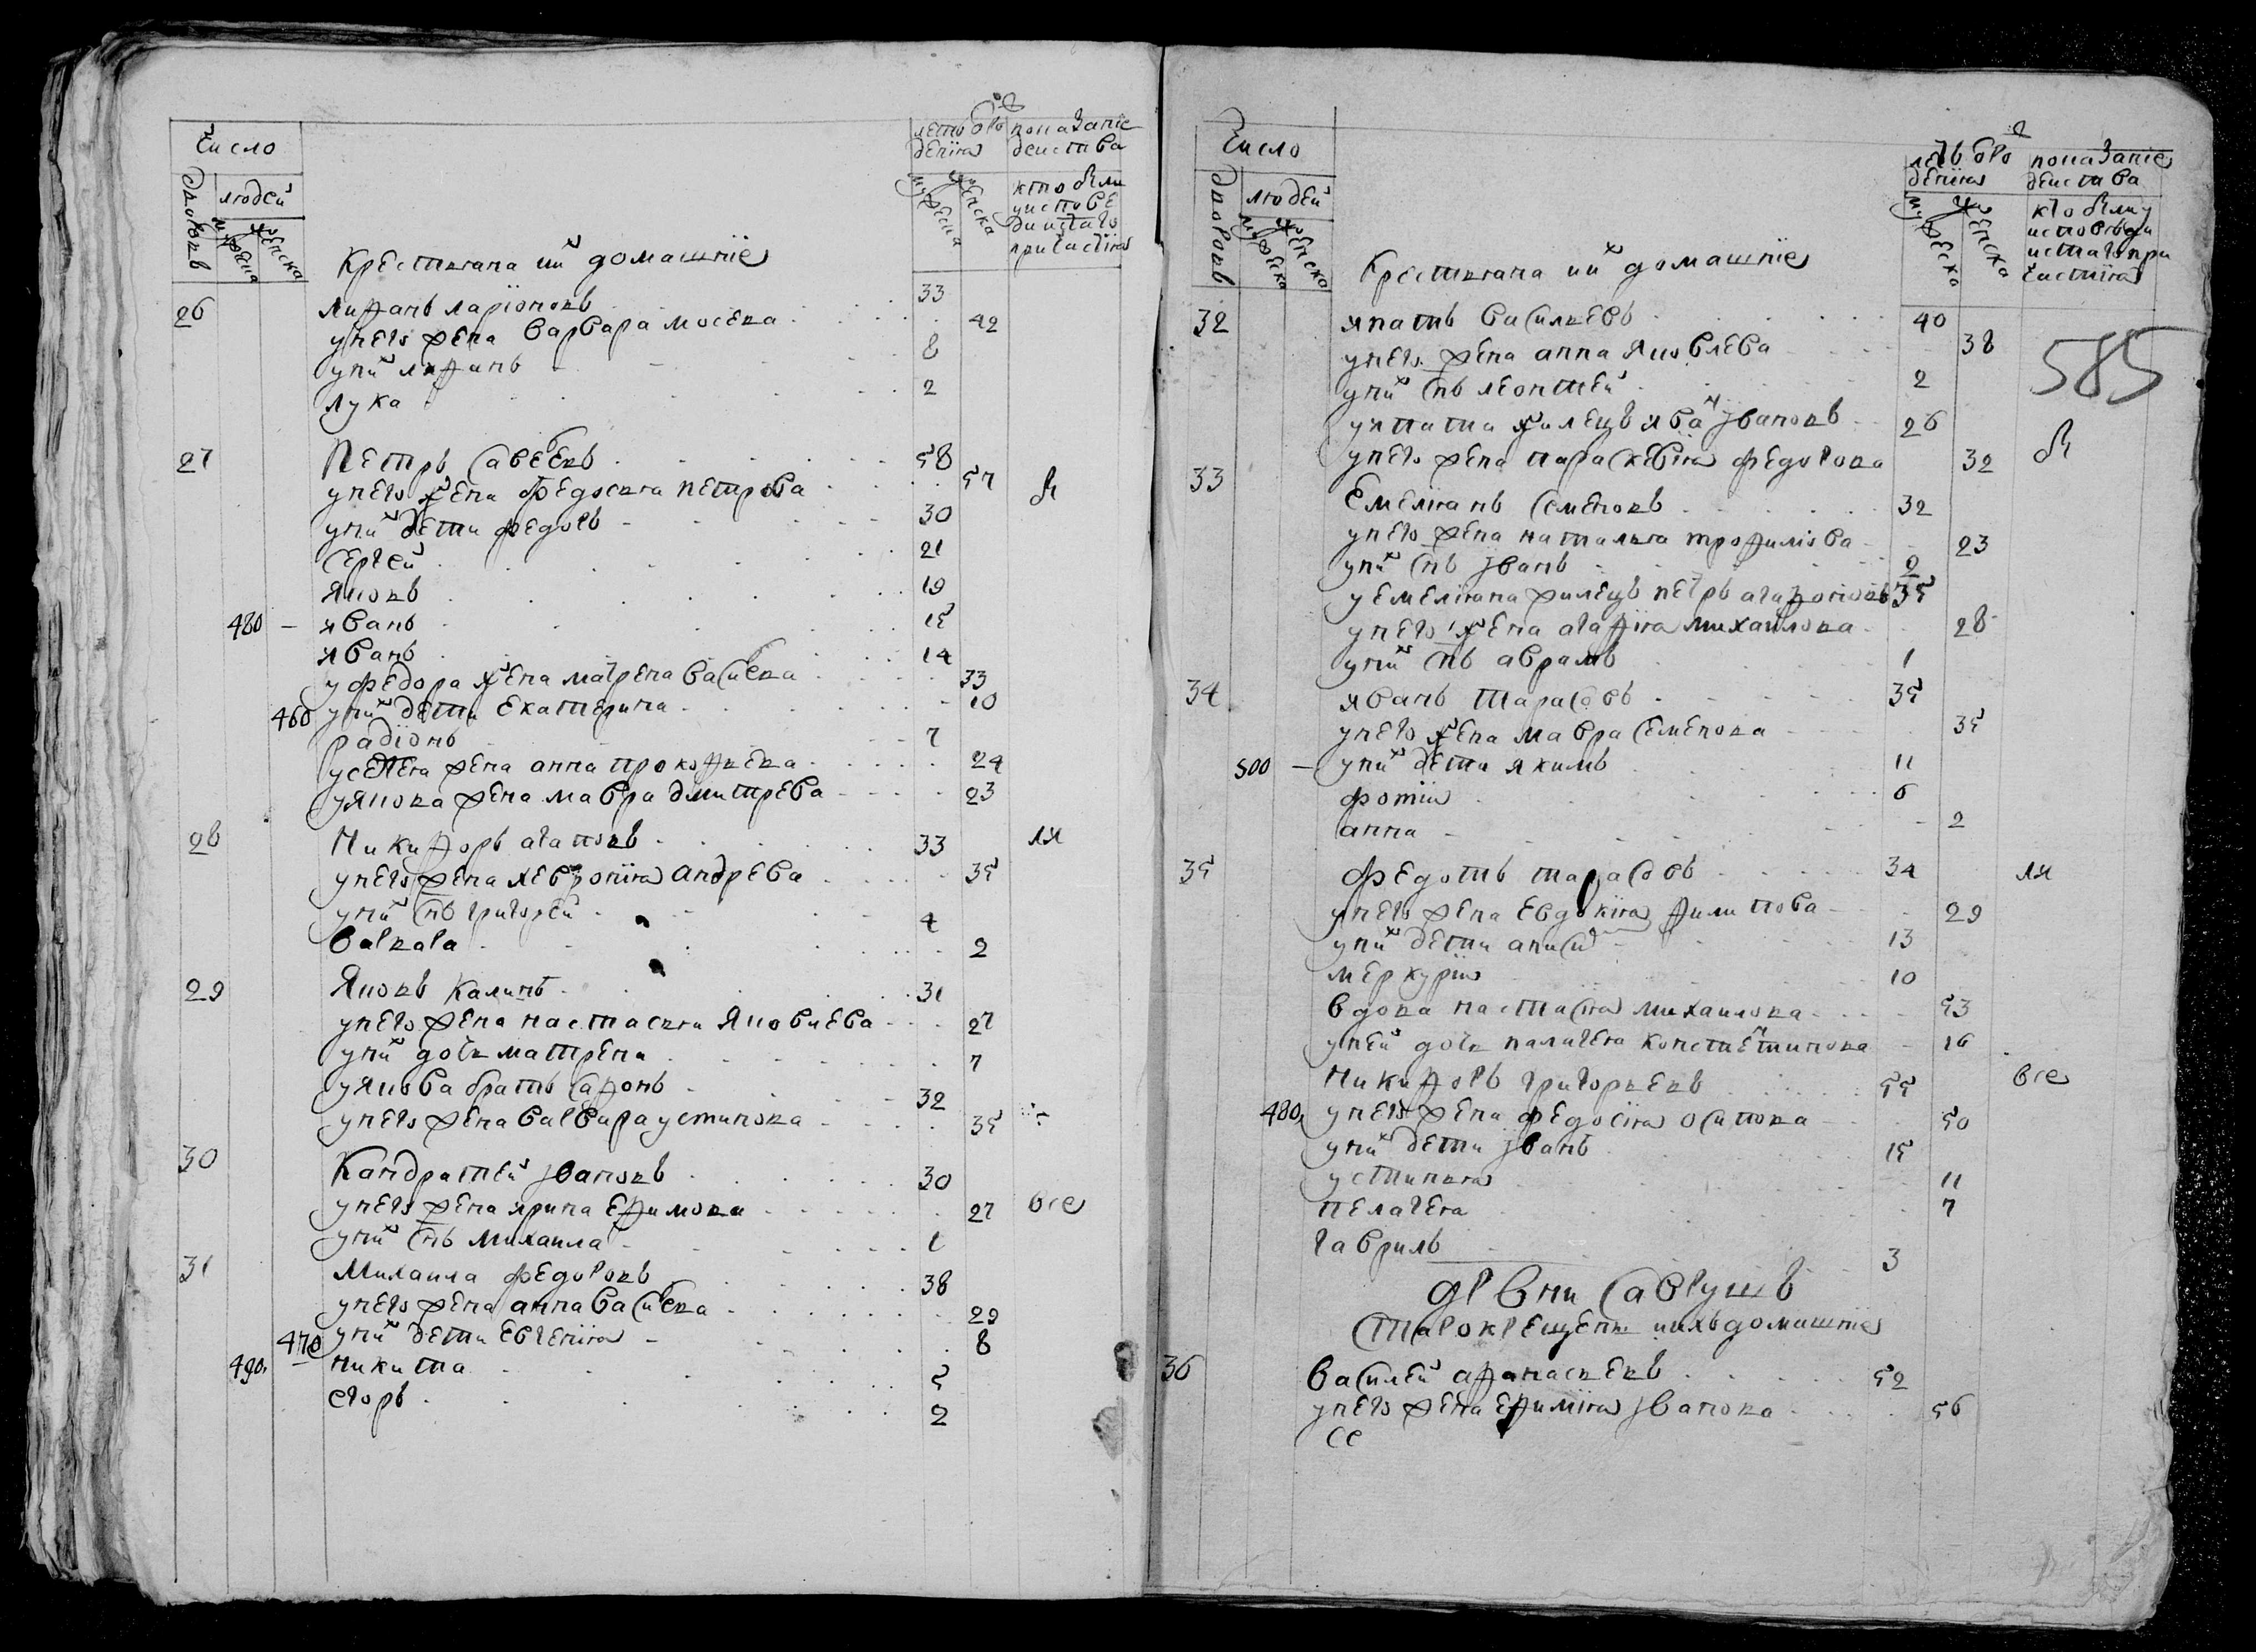 Число
людей
дворовъ
мужеска
женска
Крестьяна и их домашние
летъ от рождения
мужеска
женска
показание действа
кто были у исповеди и св҃таго причастия
26 Лифанъ Ларiоновъ 33
у него жена Варвара Мосеева 42
у них Лифинъ 8
Лука 2
27 Петръ Савѣевъ 58
у него жена Федосья Петрова 57
у них дети Федоръ 30
Сергей 21
Яковъ 19
480 – Яванъ 15
Яванъ 14
у Федора жена Матрена Васиева 33
460 у них дети Екатерина 10
Радiонъ 7
у Сергея жена Анна Прокофьева 24
у Якова жена Мавра Дмитрева 23
28 Никифоръ Агаповъ 33
у него жена Хеврония Андрева 35
у них сн҃ъ Григорей 4
Варвара 2
29 Яковъ Калинъ 31
у него жена Настасья Яковлева 27
у них дочь Матрена 7
у Якова братъ Сафонъ 32
у него жена Варвара Устинова 35
30 Кандратей Iвановъ 30
у него жена Ярина Ефимова 27
все
у них сн҃ъ Михаила 1
31 Михаила Федоровъ 38
у него жена Анна Васиева 29
470 у них дети Евгения 8
490 Никита 5
Егоръ 2
Число
людей
дворовъ
мужеска
женска
Крестьяна и их домашние
летъ от рождения
мужеска
женска
показание действа
кто были у исповеди и св҃таго причастия
585
32 Япатъ Васильевъ 40
у него жена Анна Яковлева 38
у них сн҃ъ Леонтей 2
у Япата жилецъ Яван Iвановъ 26
у него жена Параскевия Федорова 32
33 Емелянъ Семеновъ 32
у него жена Наталья Трофимова 23
у них сн҃ъ Iванъ 2
у Емеляна жилецъ Петръ Агафоновъ 35
у него жена Агафия Михаилова 28
у них сн҃ъ Аврамъ 1
34 Яванъ Тарасовъ 35
у него жена Мавра Семенова 35
500 – у них дети Якимъ 11
Фотии 6
Анна 2
35 Федотъ Тарасовъ 34
у него жена Евдокия Филипова 29
у них дети Аниси 13
Меркурии 10
вдова Настасия Михаилова 53
у ней дочь Палагея Констентинова 16
Никифоръ Григорьевъ 55
все
480 у него жена Федосия Осипова 50
у них дети Iванъ 15
Устинья 11
Пелагея 7
Гаврилъ 3
дрвни Саврушъ
старокрещены и ихъ домашние
36 Василей Афанасьевъ 52
у него жена Ефимия Iванова 56
се